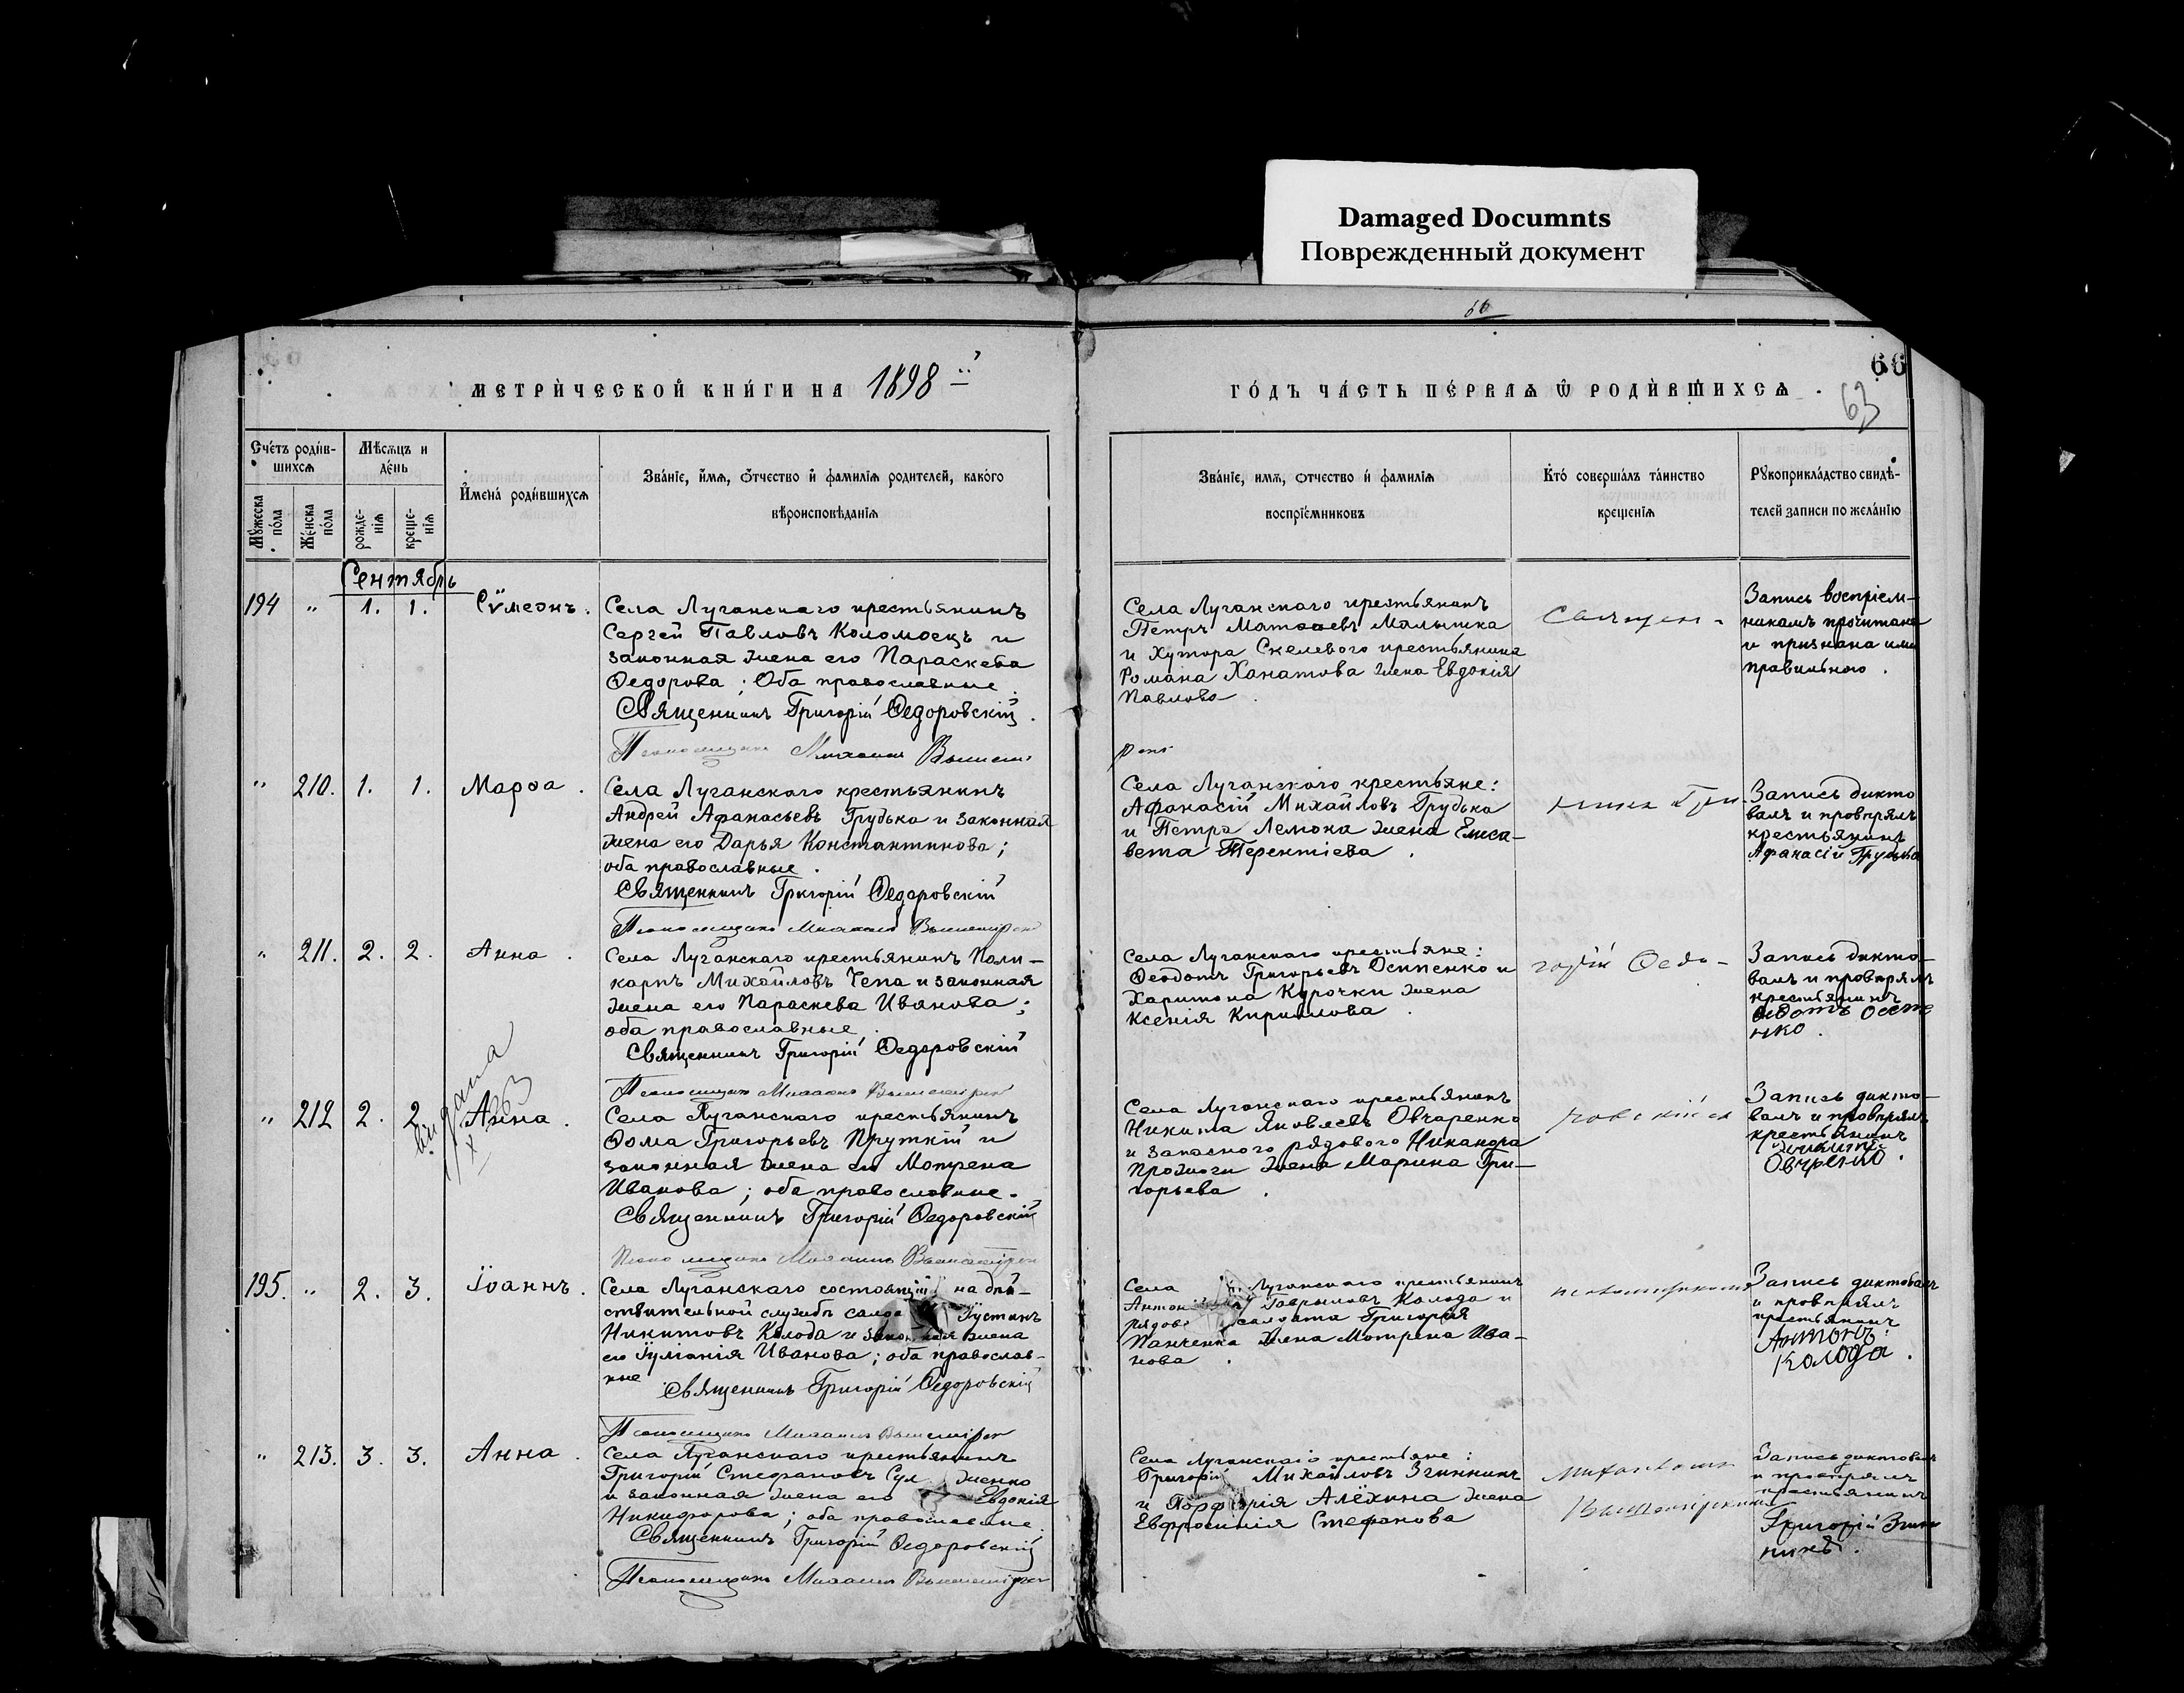 Damaged Documnts
Поврежденный документ
66
66
63
МЕТРИЧЕСКОЙ КНИГИ НА 1898 й
ГОДЪ ЧАСТЬ ПЕРВАѦ Ѿ РОДИВШИХСѦ
Счетъ родив-
шихсѧ
Мѣсѧцъ и
день
Мꙋжеска
пола
Женска
пола
рожде-
нїѧ
креще-
нїѧ
Имена родившихсѧ
Званїе, имѧ, ѻтчество и фамилїѧ родителей, какого
вѣроисповѣданїѧ
Званїе, имѧ, ѻтчество и фамилїѧ
воспрїемниковъ
Кто совершалъ таинство
крещенїѧ
Рꙋкоприкладство свидѣ-
телей записи по желанїю
Сентябрь
194 " 1. 1. Сѵмеонъ.
Села Луганскаго крестьянинъ
Сергей Павловъ Коломоецъ и
законная жена его Параскева
Ѳедорова; Оба православные.
Священникъ Григорій Ѳедоровскій.
Псаломщикъ Михаилъ
Села Луганскаго крестьянинъ
Петръ Матѳаевъ Малышка
и Хутора Скелевого крестьянина
Романа Ханатова жена Евдокія
Павлова.
Священ-
Запись воспріем-
никамъ прочитана
и признана ими
правильного.
" 210. 1. 1. Марѳа.
Села Луганскаго крестьянинъ
Андрей Афанасьевъ Грудька и законная
жена его Дарья Константинова;
оба православные.
Священникъ Григорій Ѳедоровскій
Псаломщикъ Михаилъ
Села Луганскаго крестьяне:
Афанасій Михайловъ Грудька
и Петра Лемока жена Елиса-
вета Терентіева.
никъ Гри-
Запись дикто
валъ и провѣрялъ
крестьянинъ
Афанасій Грудька
" 211. 2. 2. Анна.
Села Луганскаго крестьянинъ Поли-
карпъ Михайловъ Чепа и законная
жена его Параскева Иванова;
оба православные.
Священникъ Григорій Ѳедоровскій
Псаломщикъ Михаилъ
Села Луганскаго крестьяне:
Ѳеодотъ Григорьевъ Осипенко и
Харитона Курочки жена
Ксенія Кирилова.
горій Ѳедо-
Запись дикто-
валъ и провѣрялъ
крестьянинъ
нко.
" 212 2. 2. Анна.
Села Луганскаго крестьянинъ
Ѳома Григорьевъ Пруткій и
законная жена его Мотрена
Иванова; оба православные.
Священникъ Григорій Ѳедоровскій
Псаломщикъ Михаилъ
Села Луганскаго крестьянинъ
Никита Яковлевъ Овчаренко
и запасного рядового Никанора
жена Марина Гри-
горьева.
ровскій съ
Запись дикто-
валъ и провѣрялъ
крестьянинъ
195. " 2. 3. Іоаннъ.
Села Луганскаго состоящій на дѣй-
ствительной службѣ Іустинъ
Никитовъ Колода и законная жена
его Іуліанія Иванова; оба православ-
ные. Священникъ Григорій Ѳедоровскій
Псаломщикъ Михаилъ
Села Луганскаго крестьянинъ
Антоній Гаврыловъ Колода и
солдата Григорія
Панченка жена Мотрена Ива-
нова.
псаломщикомъ
Запись диктовалъ
и провѣрялъ
крестьянинъ
Антонъ
Колода.
" 213. 3. 3. Анна.
Села Луганскаго крестьянинъ
Григорій Стефановъ
и законная жена его Евдокія
Никифорова; оба православные.
Священникъ Григорій Ѳедоровскій
Псаломщикъ Михаилъ
Села Луганскаго крестьяне:
Григорій Михайловъ Згинникъ
и Порфирія Алёхина жена
Евфросинія Стефанова
Михаиломъ
Запись диктовалъ
и провѣрялъ
крестьянинъ
Григорій